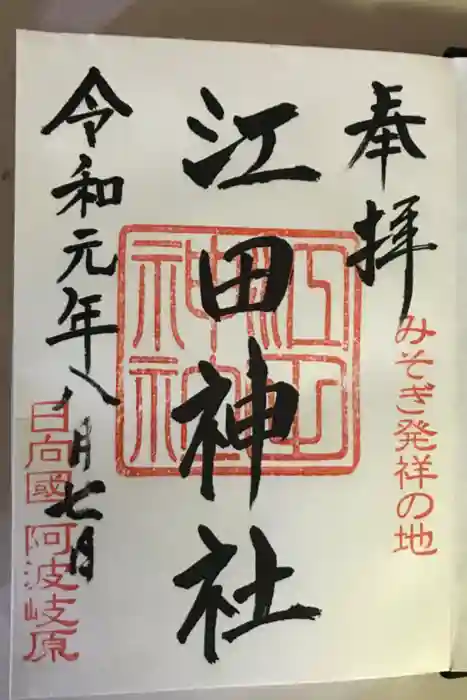 奉拝
みそぎ発祥の地
江田神社
令和元年八月七日
日向國 阿波岐原